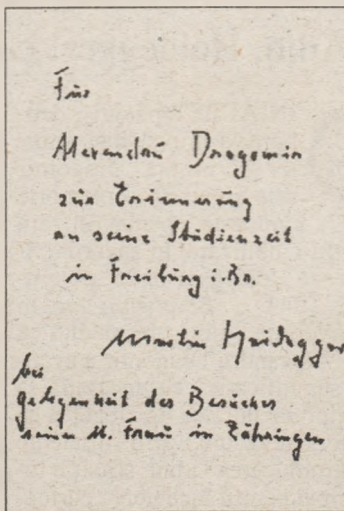 Für
Alexandru Dragomir
zur Erinnerung
an seine Studienzeit
in Freiburg i. Br.
Martin Heidegger
bei
Gelegenheit des Besuches
seiner u. Frau in Zähringen